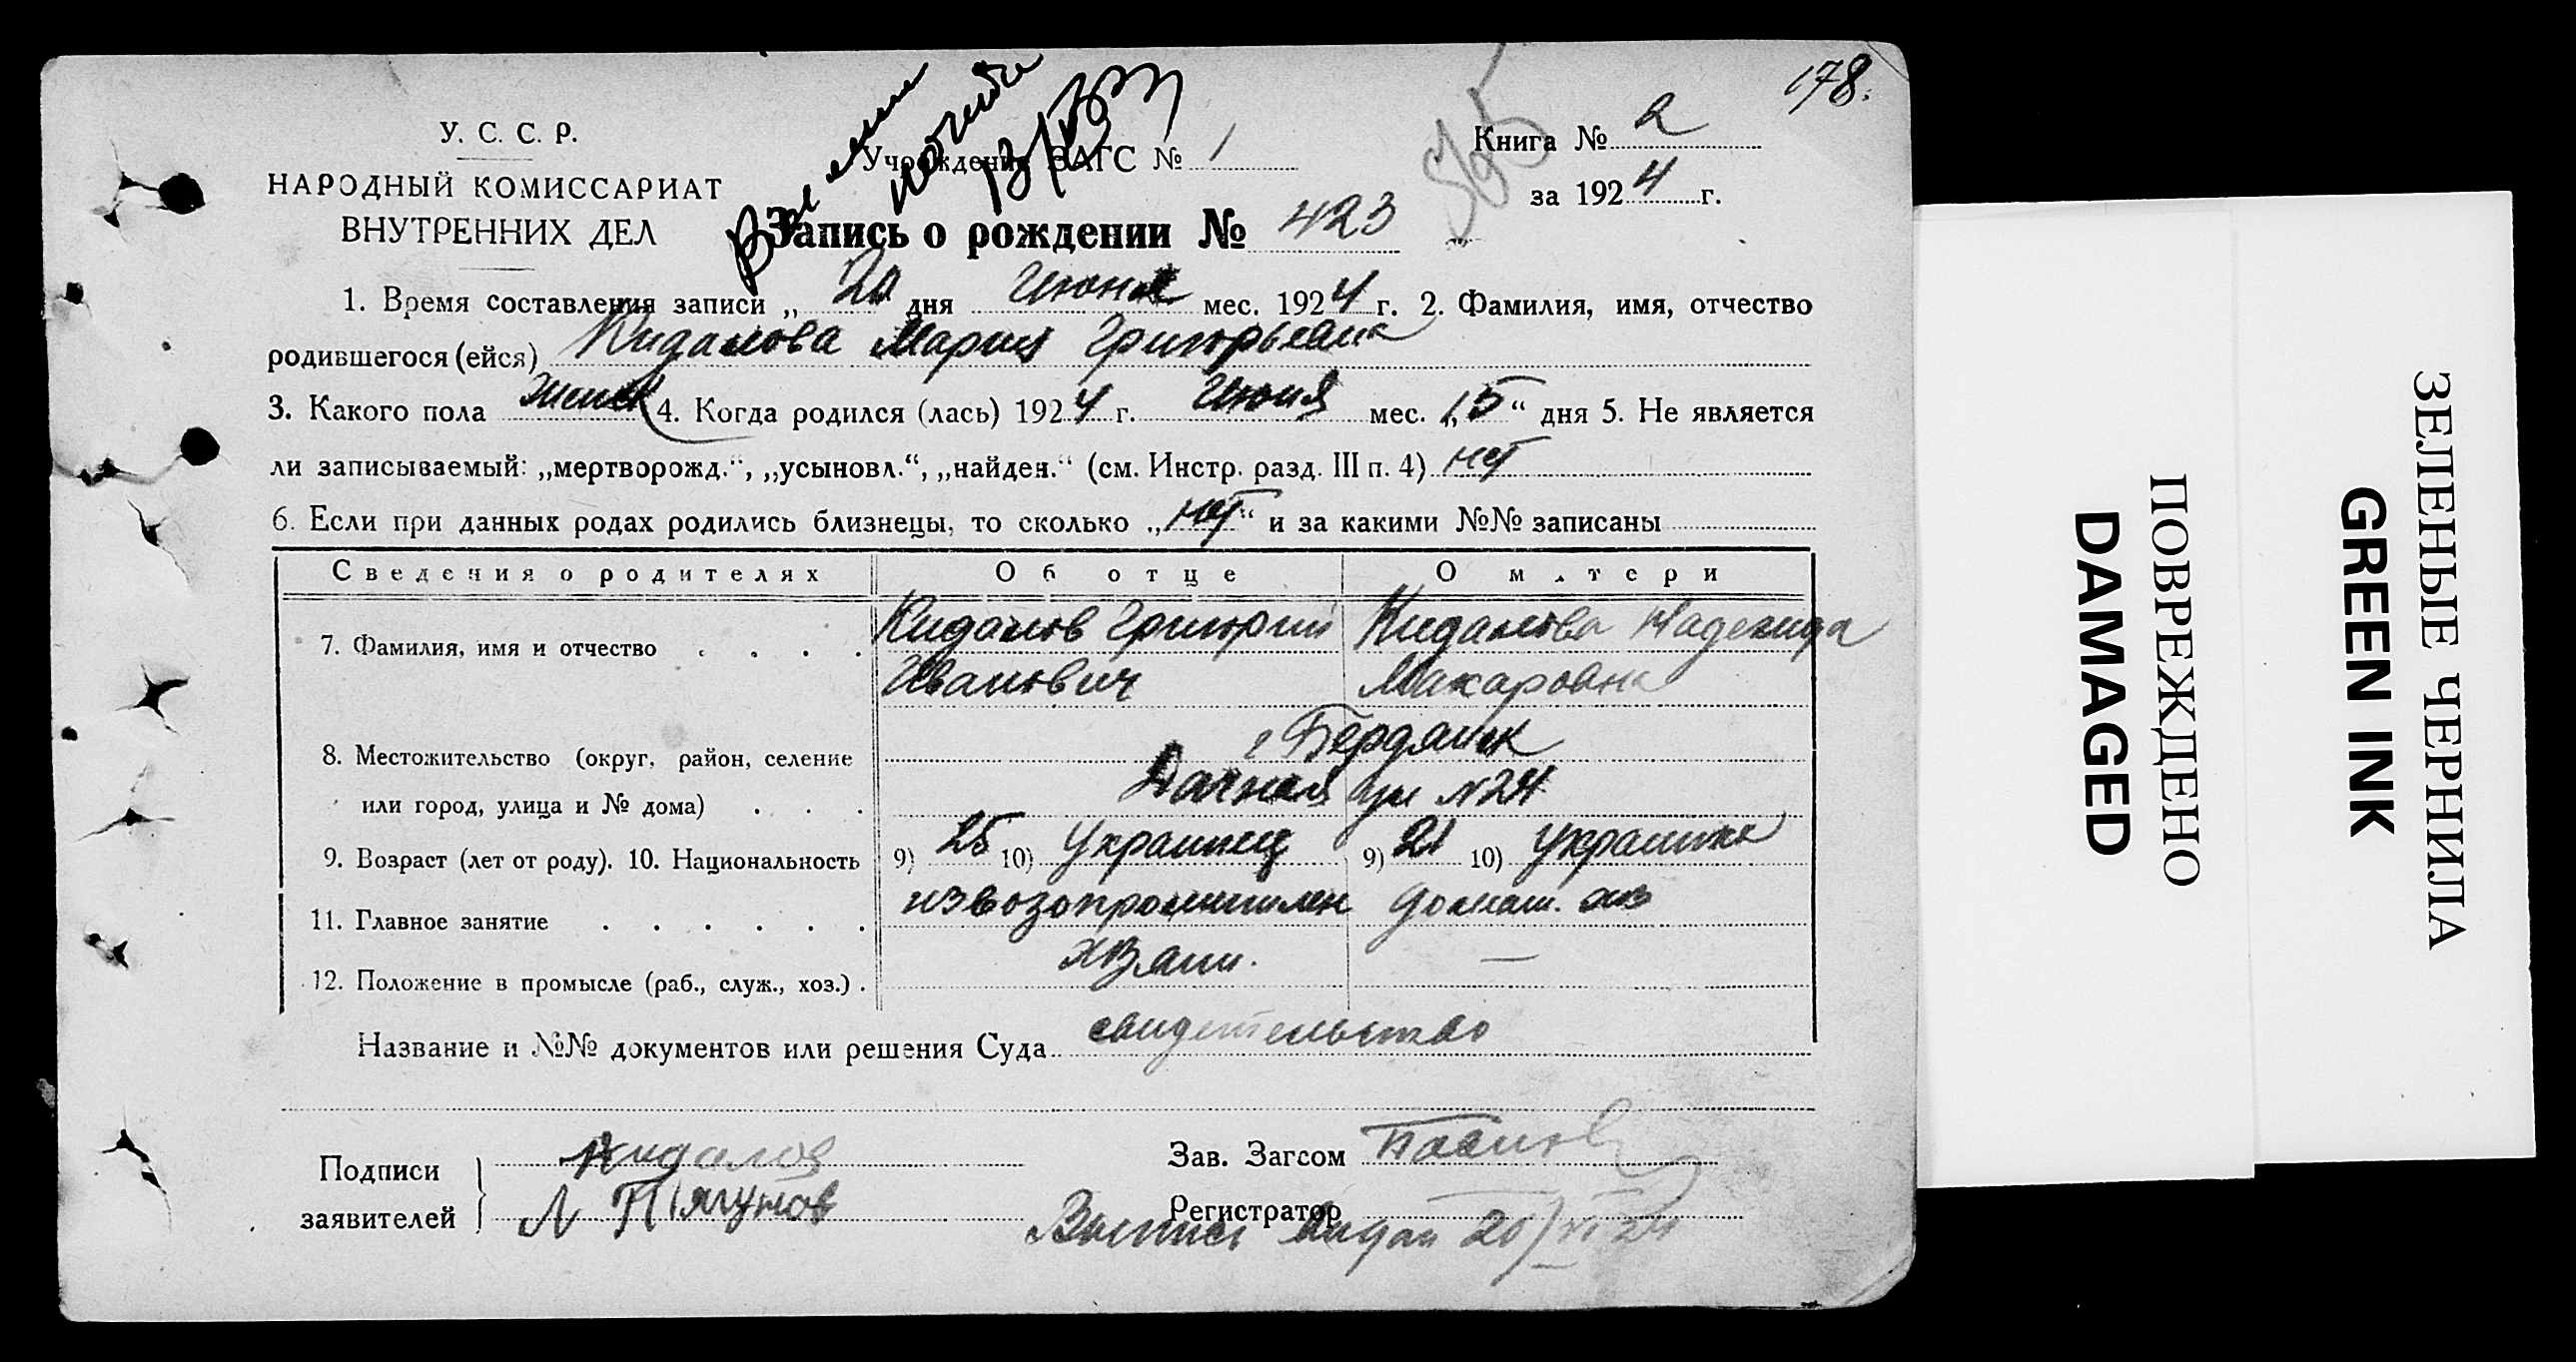 178.
У. С. С. Р.
НАРОДНЫЙ КОМИССАРИАТ
ВНУТРЕННИХ ДЕЛ
Учреждения ЗАГС № 1
Книга № 2
за 1924 г.
565
Запись о рождении № 423
1. Время составления записи „ 20 дня Июня мес. 1924 г. 2. Фамилия, имя, отчество
родившегося (ейся) Кидалова Мария Григорьевна
3. Какого пола женск 4. Когда родился (лась) 1924 г. Июня мес. „15“ дня 5. Не является
ли записываемый: „мертворожд.“, „усыновл.“, „найден.“ (см. Инстр. разд. III п. 4) нет
6. Если при данных родах родились близнецы, то сколько „нет“ и за какими №№ записаны
Сведения о родителях Об отце О матери
7. Фамилия, имя и отчество . . . . Кидалов Григорий Кидалова Надежда
Иванович Макаровна
г Бердянск
8. Местожительство (округ, район, селение
Дачная ул N 24
или город, улица и № дома) . . .
9. Возраст (лет от роду). 10. Национальность 9) 25 10) Украинец 9) 21 10) Украинка
11. Главное занятие . . . . . . извозопромышлен домаш. хоз
12. Положение в промысле (раб., служ., хоз.) . хозяин. —
Название и №№ документов или решения Суда свидетельство
Подписи
заявителей
Кидалов
Зав. Загсом
Регистратор
Выпись выдан 20/VI 24
ПОВРЕЖДЕНО
DAMAGED
ЗЕЛЕНЫЕ ЧЕРНИЛА
GREEN INK